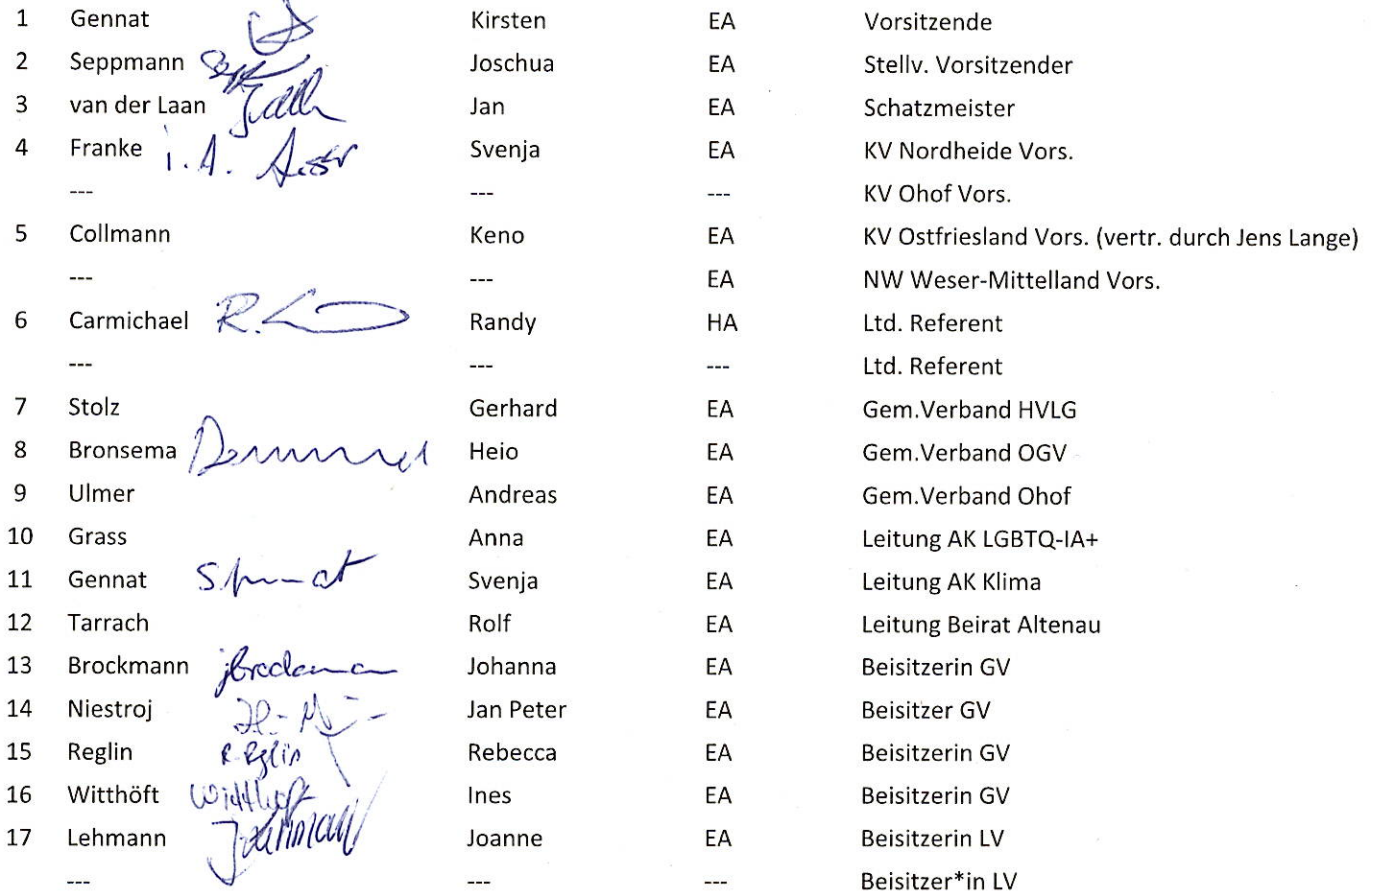 1 Gennat Kirsten EA Vorsitzende
2 Seppmann Joschua EA Stellv. Vorsitzender
3 van der Laan Jan EA Schatzmeister
4 Franke i.A. Svenja EA KV Nordheide Vors.
--- --- --- KV Ohof Vors.
5 Collmann Keno EA KV Ostfriesland Vors. (vertr. durch Jens Lange)
--- --- EA NW Weser-Mittelland Vors.
6 Carmichael Randy HA Ltd. Referent
--- --- --- Ltd. Referent
7 Stolz Gerhard EA Gem.Verband HVLG
8 Bronsema Heio EA Gem.Verband OGV
9 Ulmer Andreas EA Gem.Verband Ohof
10 Grass Anna EA Leitung AK LGBTQ-IA+
11 Gennat Svenja EA Leitung AK Klima
12 Tarrach Rolf EA Leitung Beirat Altenau
13 Brockmann Johanna EA Beisitzerin GV
14 Niestroj Jan Peter EA Beisitzer GV
15 Reglin R. Reglin Rebecca EA Beisitzerin GV
16 Witthöft Witthöft Ines EA Beisitzerin GV
17 Lehmann Joanne EA Beisitzerin LV
--- --- --- Beisitzer*in LV